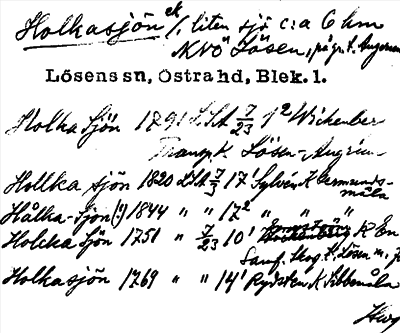 Holkasjön ek /, liten sjö c:a 6 km
NVÖ Lösen, på gr. t. Augerum
Lösens sn, Östra hd, Blek. l.
Holka Sjön 1791 LSA 7/23 1² Wickenber
Transp. K Lösen-Augrum
Hollka sjön 1820 LSA 7/3 17¹ Sylvén K Germunds-
måla
Hålka-sjön (!) 1844 " " 17² " " "
Holcka Sjön 1751 " 7/23 10¹ K En
Samf. skog t. Lösen m. fl
Holkasjön 1769 " " 14¹ Rydsten K Ubbemåla